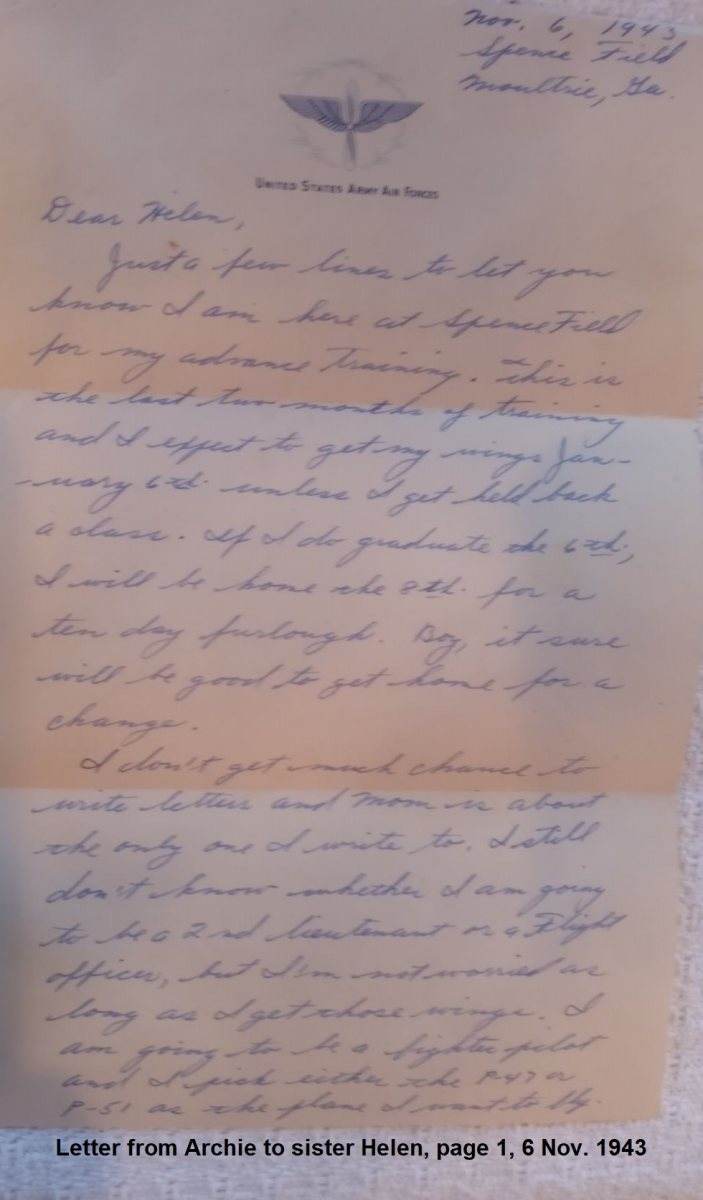 Nov. 6, 1943
Spence Field
Moultrie, Ga.
UNITED STATES ARMY AIR FORCES
Dear Helen,
Just a few lines to let you
know I am here at Spence Field
for my advance Training. This is
the last two months of training
and I expect to get my wings Jan-
-uary 6th. unless I get held back
a class. If I do graduate the 6th.,
I will be home the 8th. for a
ten day furlough. Boy, it sure
will be good to get home for a
change.
I don't get much chance to
write letters and Mom is about
the only one I write to. I still
don't know whether I am going
to be a 2nd lieutenant or a Flight
officer, but I'm not worried as
long as I get those wings. I
am going to be a fighter pilot
and I pick either the P-47 or
P-51 as the plane I want to fly.
Letter from Archie to sister Helen, page 1, 6 Nov. 1943